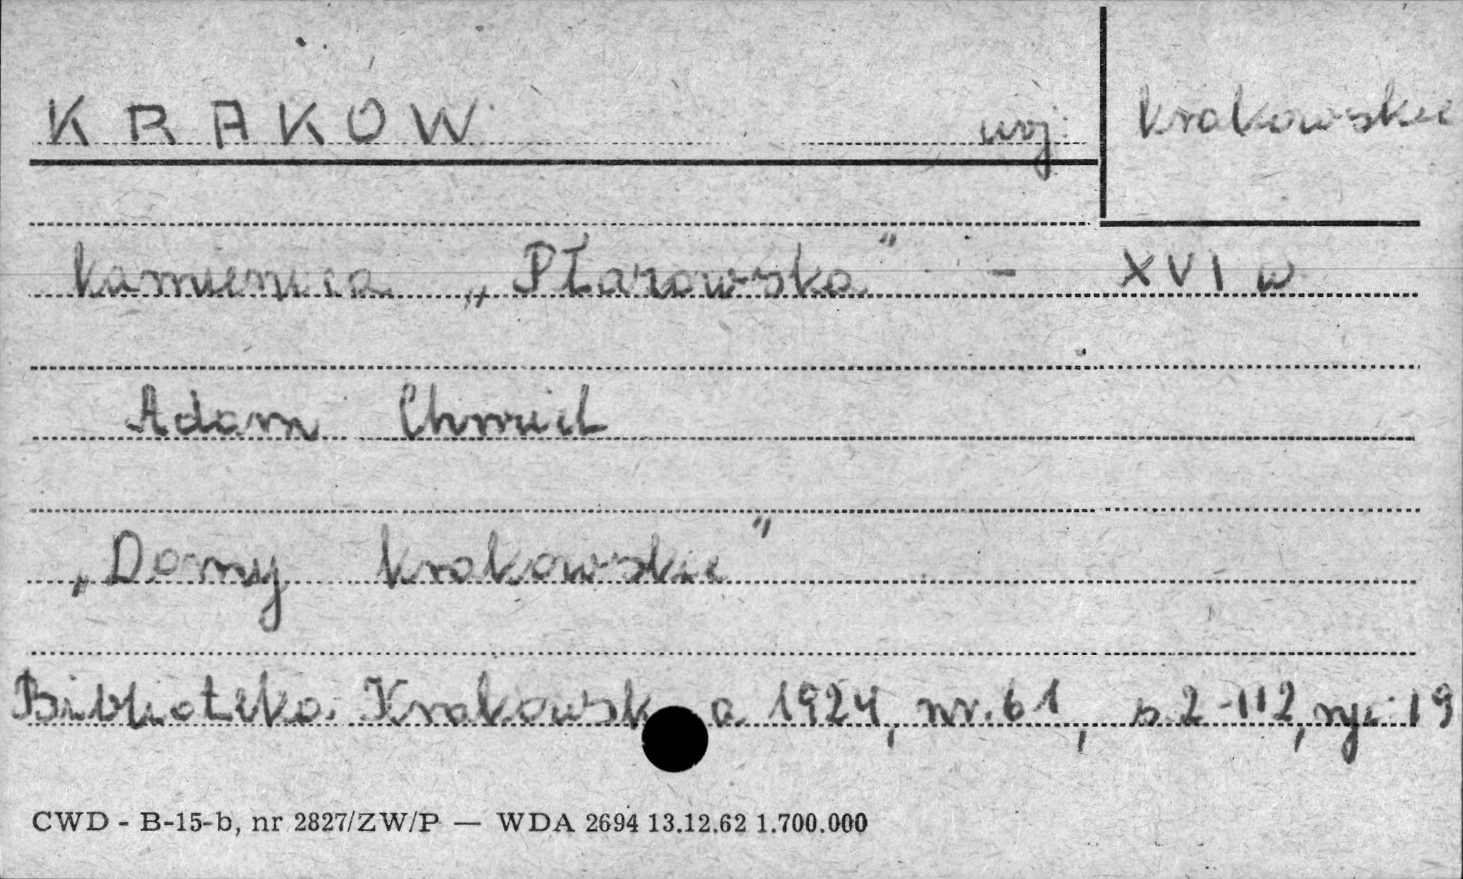 KRAKOW woj: krakowskie
kamienica „Płazowska" - XVI w
Adam Chmiel
„Domy krakowskie"
Biblioteka Krakowska 1924, nr. 61, s. 2-112, ryc. 19
CWD - B-15-b, nr 2827/ZW/P — WDA 2694 13.12.62 1.700.000